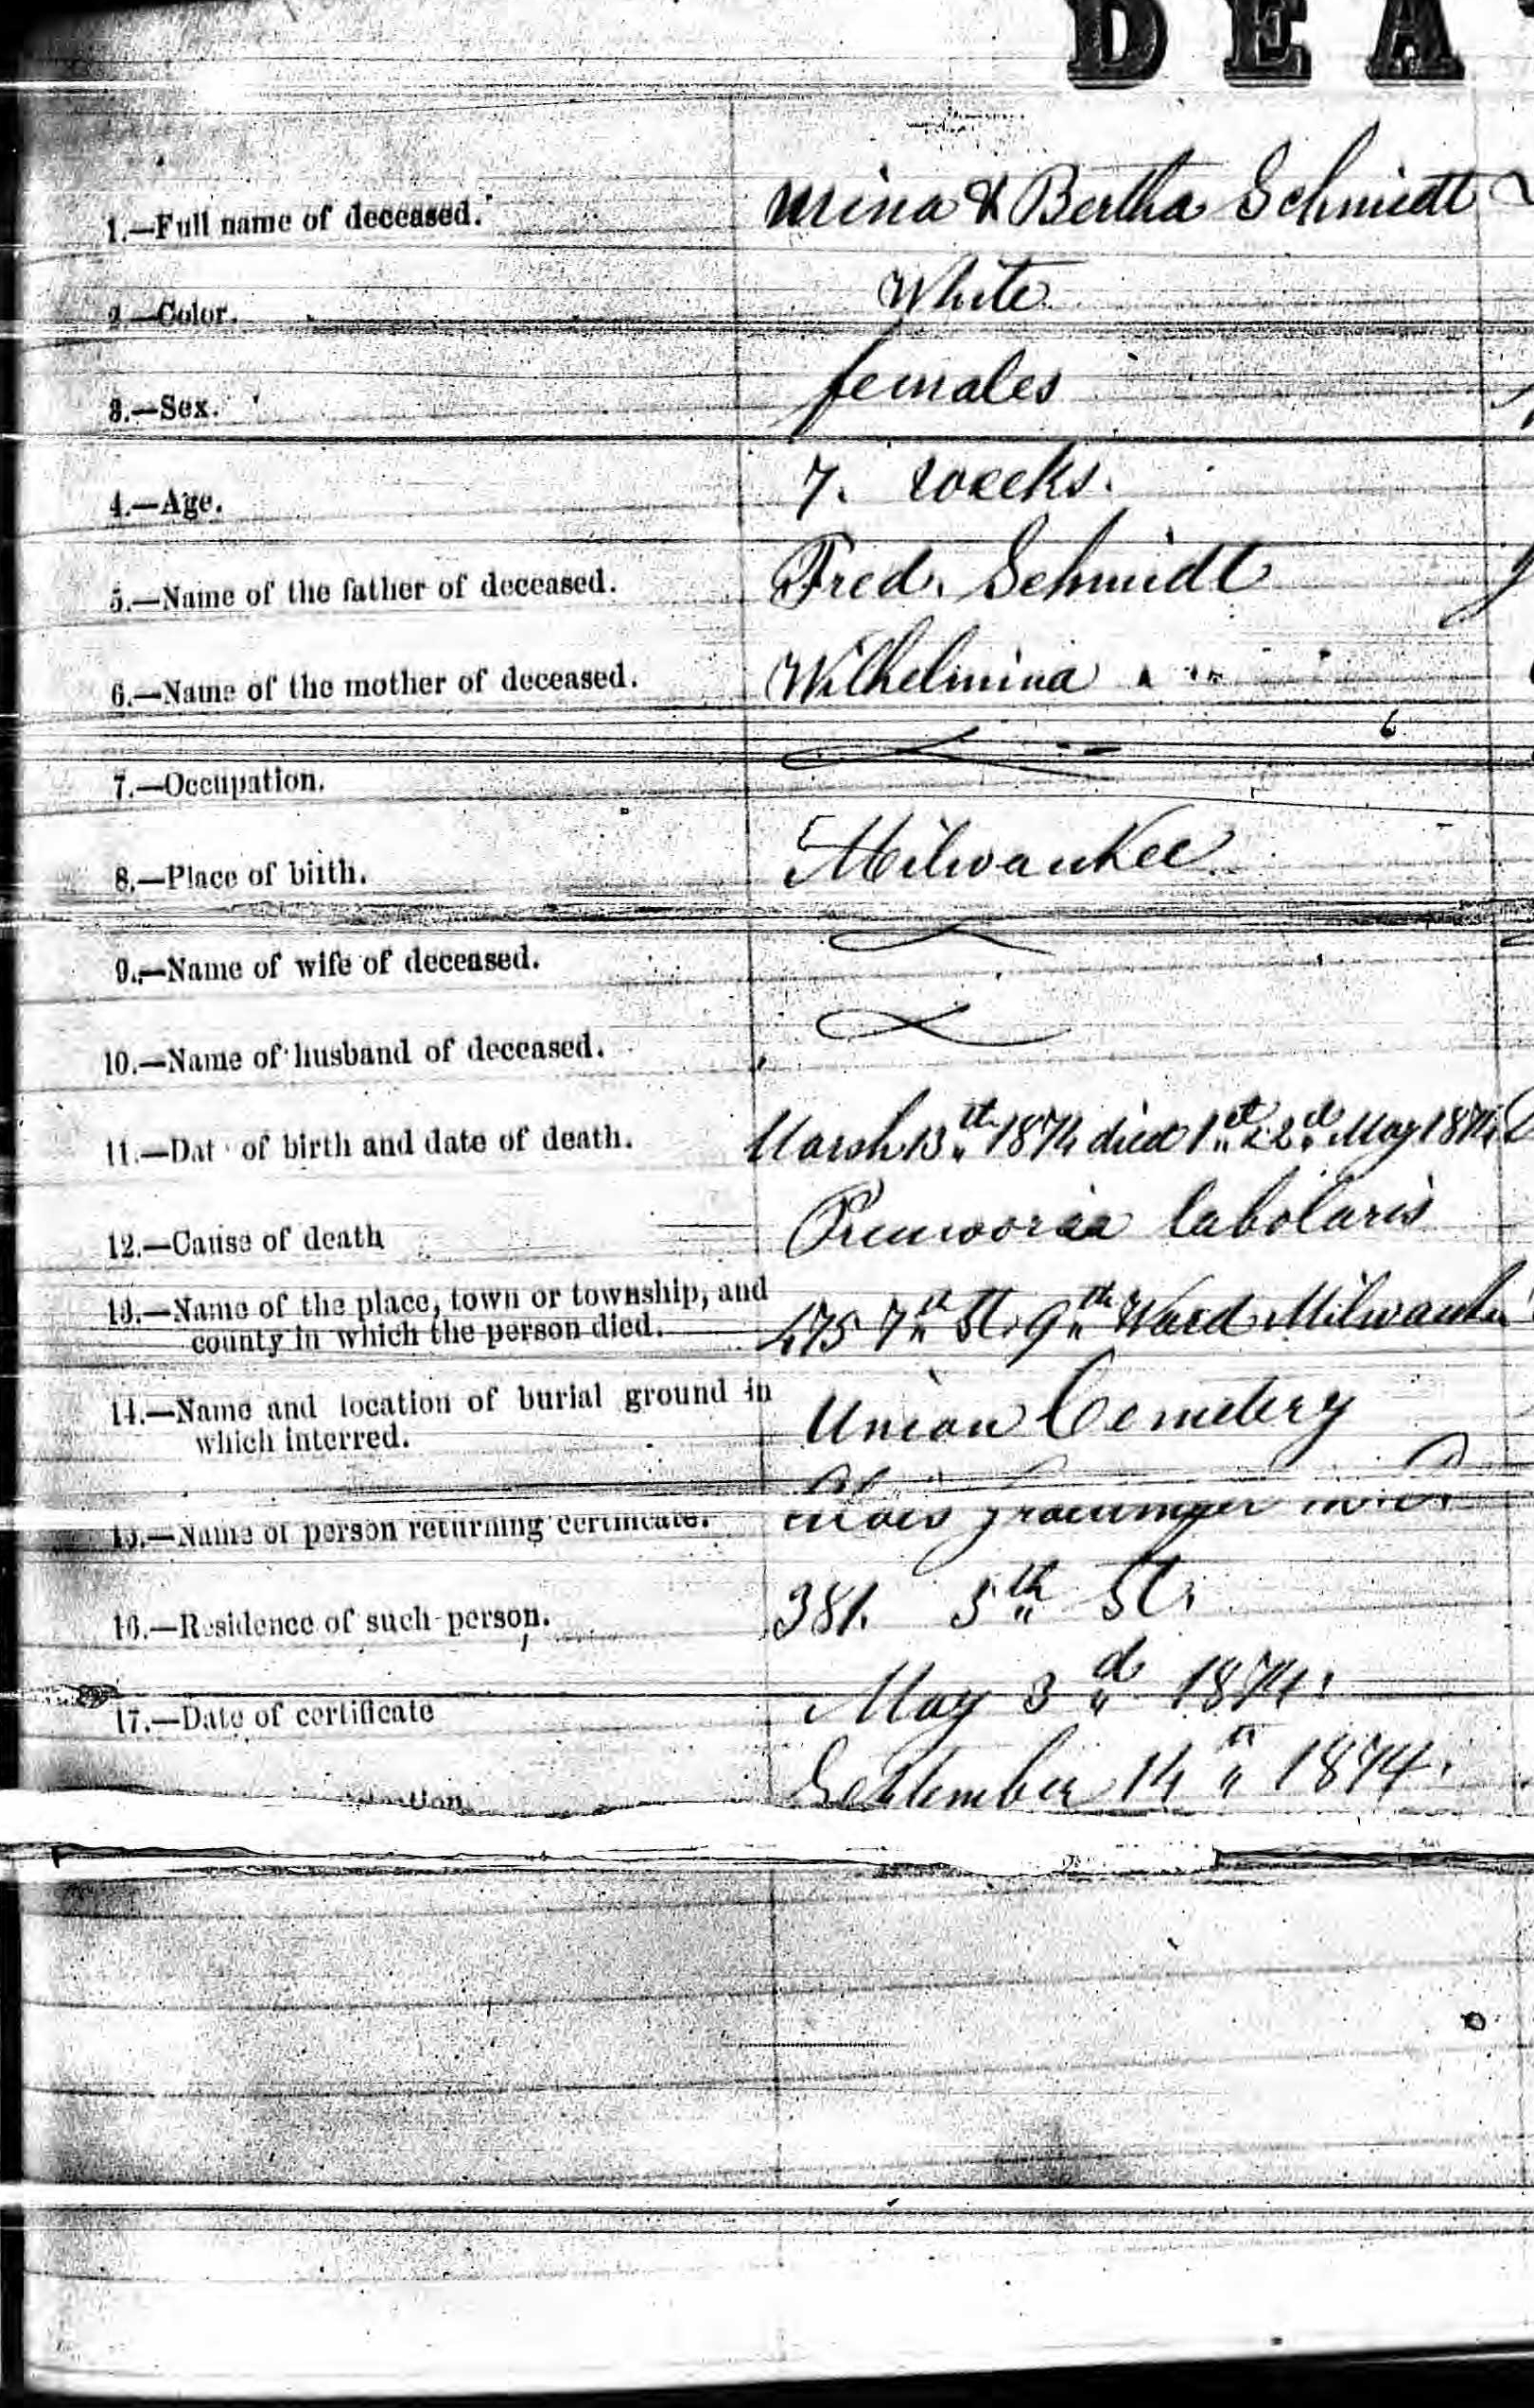 DEA
1.—Full name of deceased. Mina & Bertha Schmidt
2.—Color. White
3.—Sex. females
4.—Age. 7. weeks.
5.—Name of the father of deceased. Fred. Schmidt
6.—Name of the mother of deceased. Wilhelmina " "
7.—Occupation.
8.—Place of birth. Milwaukee
9.—Name of wife of deceased.
10.—Name of husband of deceased.
11.—Dat of birth and date of death. Marsh 13th 1874 died 1st & 2d May 1874
12.—Cause of death labolaris
13.—Name of the place, town or township, and
county in which the person died. 475 7th St. 9th Ward Milwaukee
14.—Name and location of burial ground in
which interred. Union Cemetery
15.—Name of person returning certificate. M.D.
16.—Residence of such person. 381. 5th St.
17.—Date of certificate May 3d 1874.
September 14th 1874.